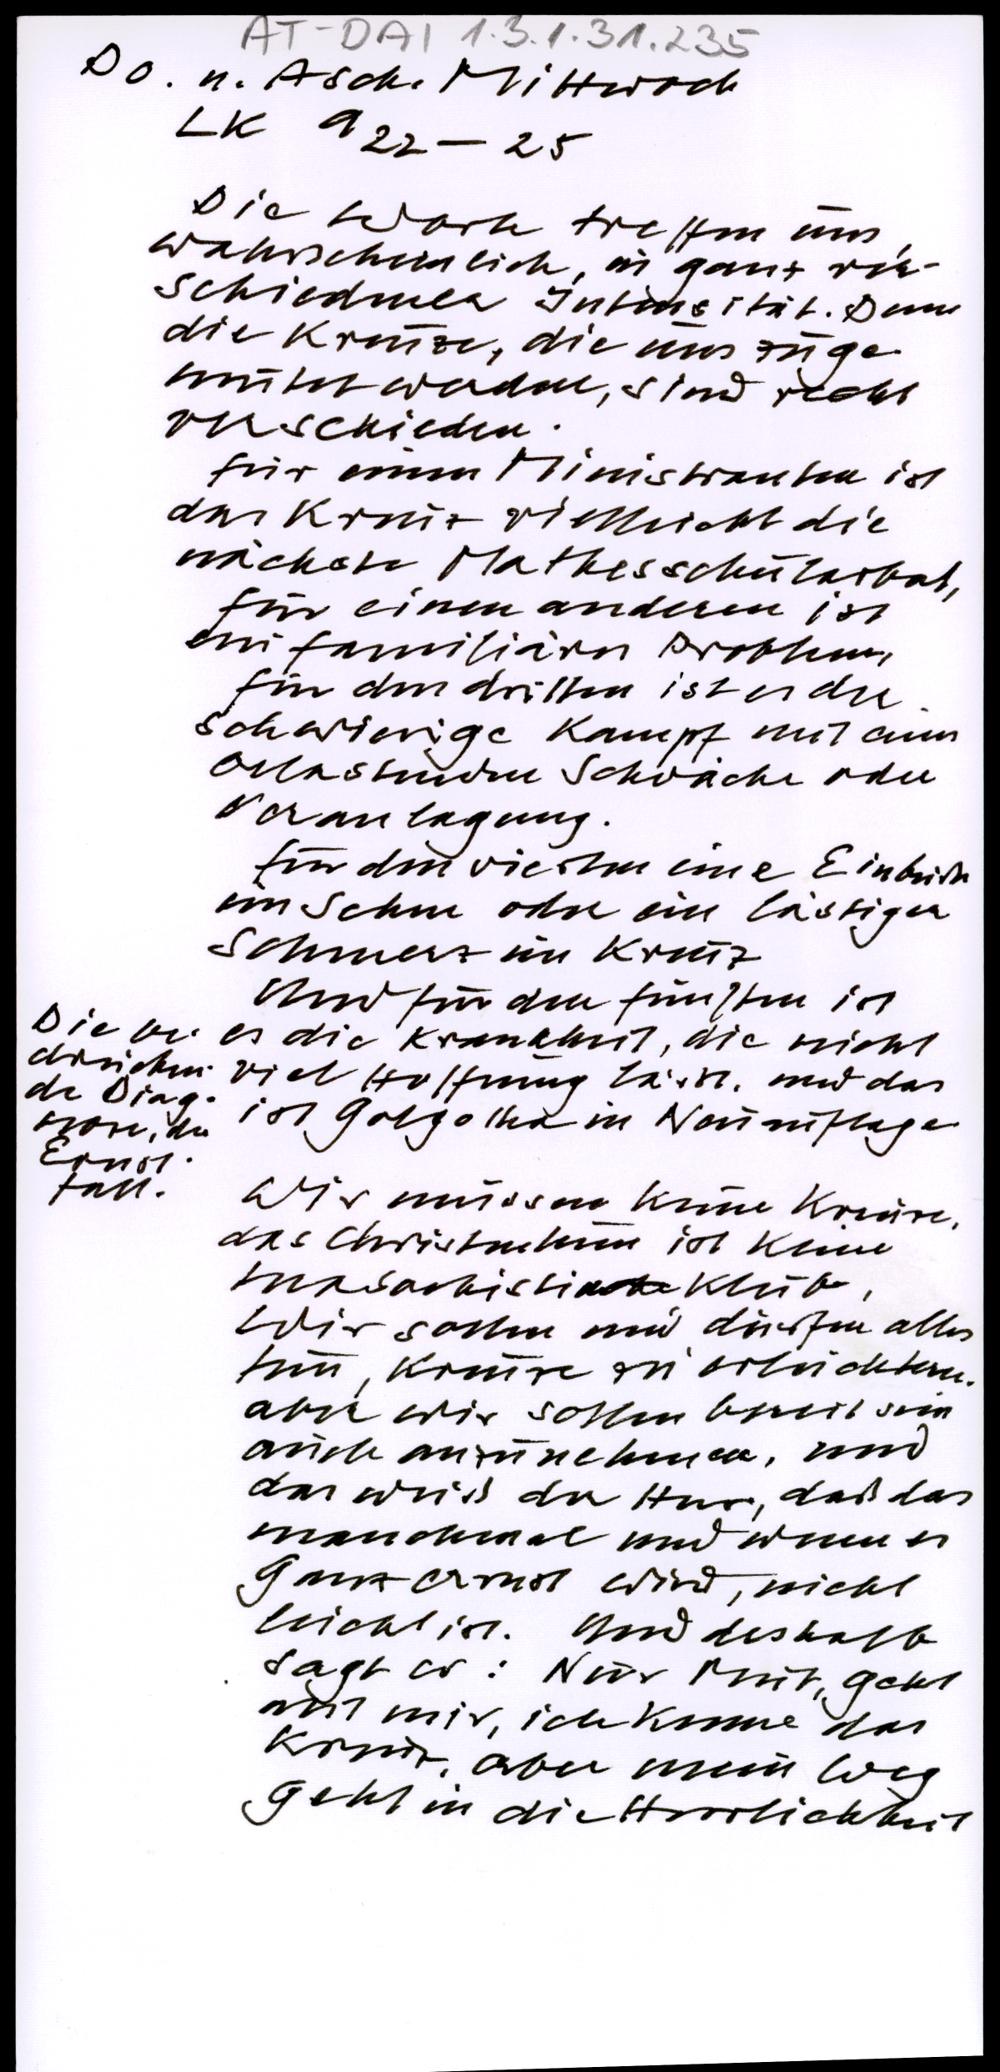 AT-DAI 1.3.1.31.235
Do. n. Asch. Mittwoch
LK 9 22 – 25
Die Worte treffen uns,
wahrscheinlich, in ganz ver-
schiedener Intensität. Denn
die Kreuze, die uns zuge
mutet werden, sind recht
verschieden.
für einen Ministranten ist
das Kreuz vielleicht die
nächste Mathesschularbeit,
für einen anderen ist
ein familiäres Problem,
für den dritten ist es der
schwierige Kampf mit einer
belastenden Schwäche oder
Veranlagung.
für den vierten eine Einbuße
im Sehen oder ein lästiger
Schmerz im Kreuz
Und für den fünften ist
es die Krankheit, die nicht
viel Hoffnung lässt. und das
ist Golgotha in Neuauflage
Die be-
drücken-
de Diag-
nose, der
Ernst-
fall.
Wir müssen keine Kreuze.
das Christentum ist keine
masochistische Klub,
Wir sollen und dürfen alles
tun, Kreuze zu erleichtern.
aber wir sollen bereit sein
auch anzunehmen, und
das weiß der Herr, daß das
manchmal und wenn es
ganz ernst wird, nicht
leicht ist. Und deshalb
sagt er: Nur Mut, geht
mit mir, ich kenne das
Kreuz, aber mein Weg
geht in die Herrlichkeit